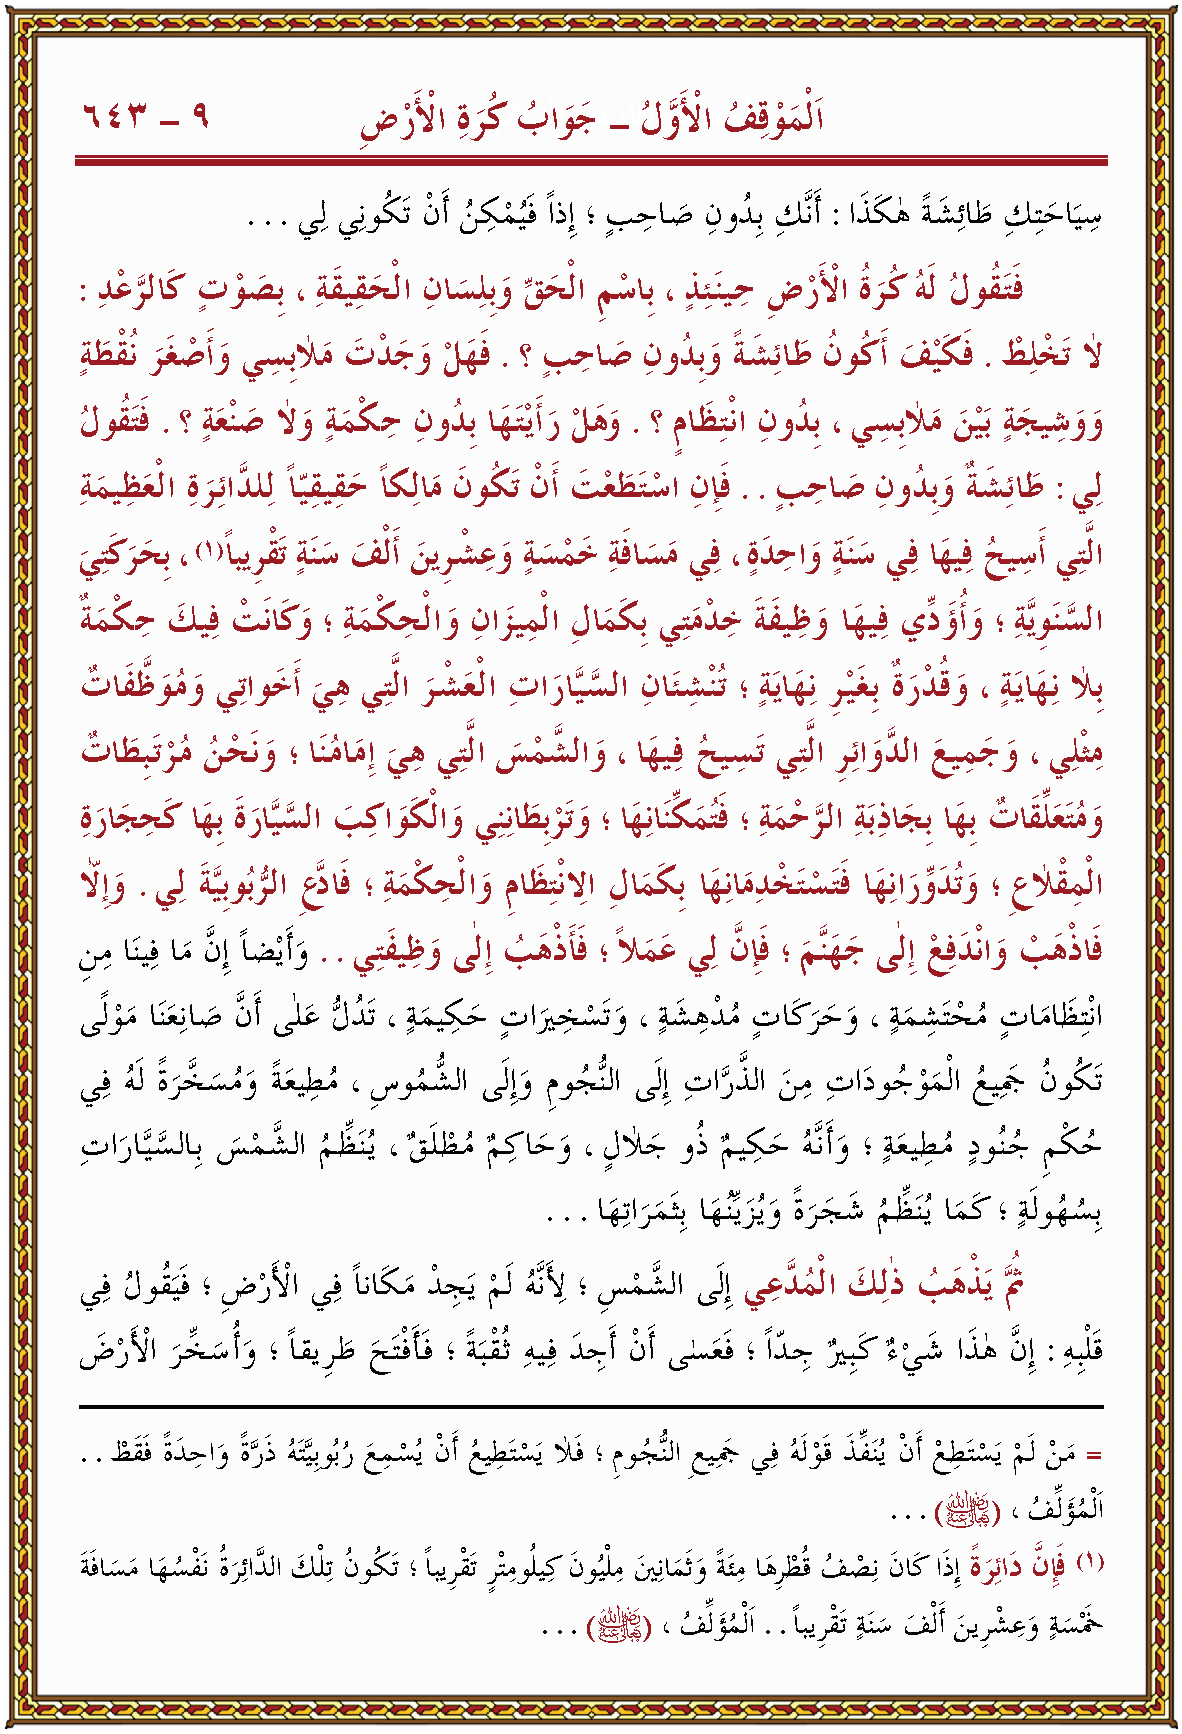 اَلْمَوْقِفُ الْأَوَّلُ ـ جَوَابُ كُرَةِ الْأَرْضِ ٩ ـ ٦٤٣
سِيَاحَتِكِ طَائِشَةً هٰكَذَا : أَنَّكِ بِدُونِ صَاحِبٍ ؛ إِذاً فَيُمْكِنُ أَنْ تَكُونِي لِي . . .
فَتَقُولُ لَهُ كُرَةُ الْأَرْضِ حِينَئِذٍ ، بِاسْمِ الْحَقِّ وَبِلِسَانِ الْحَقِيقَةِ ، بِصَوْتٍ كَالرَّعْدِ :
لَا تَخْلِطْ . فَكَيْفَ أَكُونُ طَائِشَةً وَبِدُونِ صَاحِبٍ ؟ . فَهَلْ وَجَدْتَ مَلَابِسِي وَأَصْغَرَ نُقْطَةٍ
وَوَشِيجَةٍ بَيْنَ مَلَابِسِي ، بِدُونِ انْتِظَامٍ ؟ . وَهَلْ رَأَيْتَهَا بِدُونِ حِكْمَةٍ وَلَا صَنْعَةٍ ؟ . فَتَقُولُ
لِي : طَائِشَةٌ وَبِدُونِ صَاحِبٍ . . فَإِنِ اسْتَطَعْتَ أَنْ تَكُونَ مَالِكاً حَقِيقِيّاً لِلدَّائِرَةِ الْعَظِيمَةِ
الَّتِي أَسِيحُ فِيهَا فِي سَنَةٍ وَاحِدَةٍ ، فِي مَسَافَةِ خَمْسَةٍ وَعِشْرِينَ أَلْفَ سَنَةٍ تَقْرِيباً(١) ، بِحَرَكَتِيَ
السَّنَوِيَّةِ ؛ وَأُؤَدِّي فِيهَا وَظِيفَةَ خِدْمَتِي بِكَمَالِ الْمِيزَانِ وَالْحِكْمَةِ ؛ وَكَانَتْ فِيكَ حِكْمَةٌ
بِلَا نِهَايَةٍ ، وَقُدْرَةٌ بِغَيْرِ نِهَايَةٍ ؛ تُنْشِئَانِ السَّيَّارَاتِ الْعَشْرَ الَّتِي هِيَ أَخَوَاتِي وَمُوَظَّفَاتٌ
مِثْلِي ، وَجَمِيعَ الدَّوَائِرِ الَّتِي تَسِيحُ فِيهَا ، وَالشَّمْسَ الَّتِي هِيَ إِمَامُنَا ؛ وَنَحْنُ مُرْتَبِطَاتٌ
وَمُتَعَلِّقَاتٌ بِهَا بِجَاذِبَةِ الرَّحْمَةِ ؛ فَتُمَكِّنَانِهَا ؛ وَتَرْبِطَانِنِي وَالْكَوَاكِبَ السَّيَّارَةَ بِهَا كَحِجَارَةِ
الْمِقْلَاعِ ؛ وَتُدَوِّرَانِهَا فَتَسْتَخْدِمَانِهَا بِكَمَالِ الِانْتِظَامِ وَالْحِكْمَةِ ؛ فَادَّعِ الرُّبُوبِيَّةَ لِي . وَإِلَّا
فَاذْهَبْ وَانْدَفِعْ إِلَى جَهَنَّمَ ؛ فَإِنَّ لِي عَمَلاً ؛ فَأَذْهَبُ إِلَى وَظِيفَتِي . . وَأَيْضاً إِنَّ مَا فِينَا مِنِ
انْتِظَامَاتٍ مُحْتَشِمَةٍ ، وَحَرَكَاتٍ مُدْهِشَةٍ ، وَتَسْخِيرَاتٍ حَكِيمَةٍ ، تَدُلُّ عَلَى أَنَّ صَانِعَنَا مَوْلًى
تَكُونُ جَمِيعُ الْمَوْجُودَاتِ مِنَ الذَّرَّاتِ إِلَى النُّجُومِ وَإِلَى الشُّمُوسِ ، مُطِيعَةً وَمُسَخَّرَةً لَهُ فِي
حُكْمِ جُنُودٍ مُطِيعَةٍ ؛ وَأَنَّهُ حَكِيمٌ ذُو جَلَالٍ ، وَحَاكِمٌ مُطْلَقٌ ، يُنَظِّمُ الشَّمْسَ بِالسَّيَّارَاتِ
بِسُهُولَةٍ ؛ كَمَا يُنَظِّمُ شَجَرَةً وَيُزَيِّنُهَا بِثَمَرَاتِهَا . . .
ثُمَّ يَذْهَبُ ذٰلِكَ الْمُدَّعِي إِلَى الشَّمْسِ ؛ لِأَنَّهُ لَمْ يَجِدْ مَكَاناً فِي الْأَرْضِ ؛ فَيَقُولُ فِي
قَلْبِهِ : إِنَّ هٰذَا شَيْءٌ كَبِيرٌ جِدّاً ؛ فَعَسٰى أَنْ أَجِدَ فِيهِ ثُقْبَةً ؛ فَأَفْتَحَ طَرِيقاً ؛ وَأُسَخِّرَ الْأَرْضَ
= مَنْ لَمْ يَسْتَطِعْ أَنْ يُنَفِّذَ قَوْلَهُ فِي جَمِيعِ النُّجُومِ ؛ فَلَا يَسْتَطِيعُ أَنْ يُسْمِعَ رُبُوبِيَّتَهُ ذَرَّةً وَاحِدَةً فَقَطْ . .
اَلْمُؤَلِّفُ ، (رَضِيَ اللهُ تَعَالَى عَنْهُ) . . .
(١) فَإِنَّ دَائِرَةً إِذَا كَانَ نِصْفُ قُطْرِهَا مِئَةً وَثَمَانِينَ مِلْيُونَ كِيلُومِتْرٍ تَقْرِيباً ؛ تَكُونُ تِلْكَ الدَّائِرَةُ نَفْسُهَا مَسَافَةَ
خَمْسَةٍ وَعِشْرِينَ أَلْفَ سَنَةٍ تَقْرِيباً . . اَلْمُؤَلِّفُ ، (رَضِيَ اللهُ تَعَالَى عَنْهُ) . . .